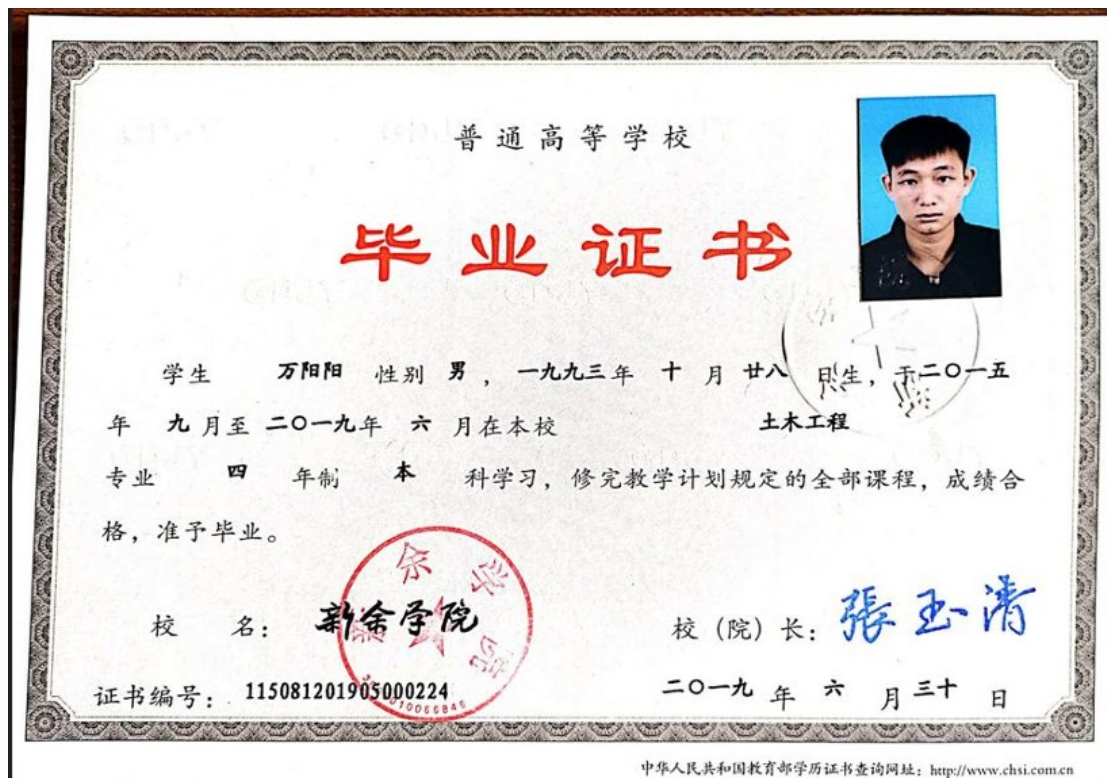 普通高等学校
毕业证书
学生 万阳阳 性别 男，一九九三年 十 月 廿八 日生，于二〇一五
年 九 月至 二〇一九年 六 月在本校 土木工程
专业 四 年制 本 科学习，修完教学计划规定的全部课程，成绩合
格，准予毕业。
校 名： 新余学院
新余学院
校（院）长： 張玉清
证书编号： 115081201905000224
二〇一九 年 六 月 三十 日
中华人民共和国教育部学历证书查询网址：http://www.chsi.com.cn